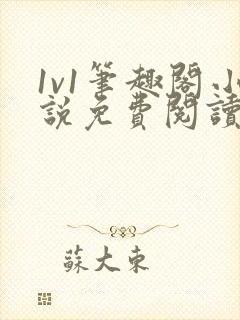 1v1筆趣閣.小
說免費閱讀
蘇大東